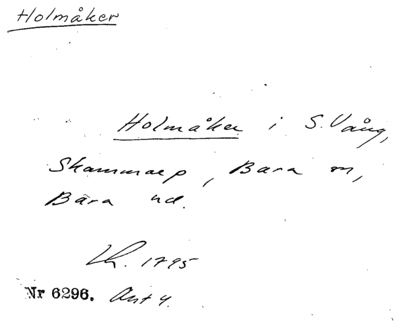 Holmåker
Holmåker i S. Vång,
Skammarp, Bara sn,
Bara hd.
Lh. 1795
Nr 6296. Akt 4.